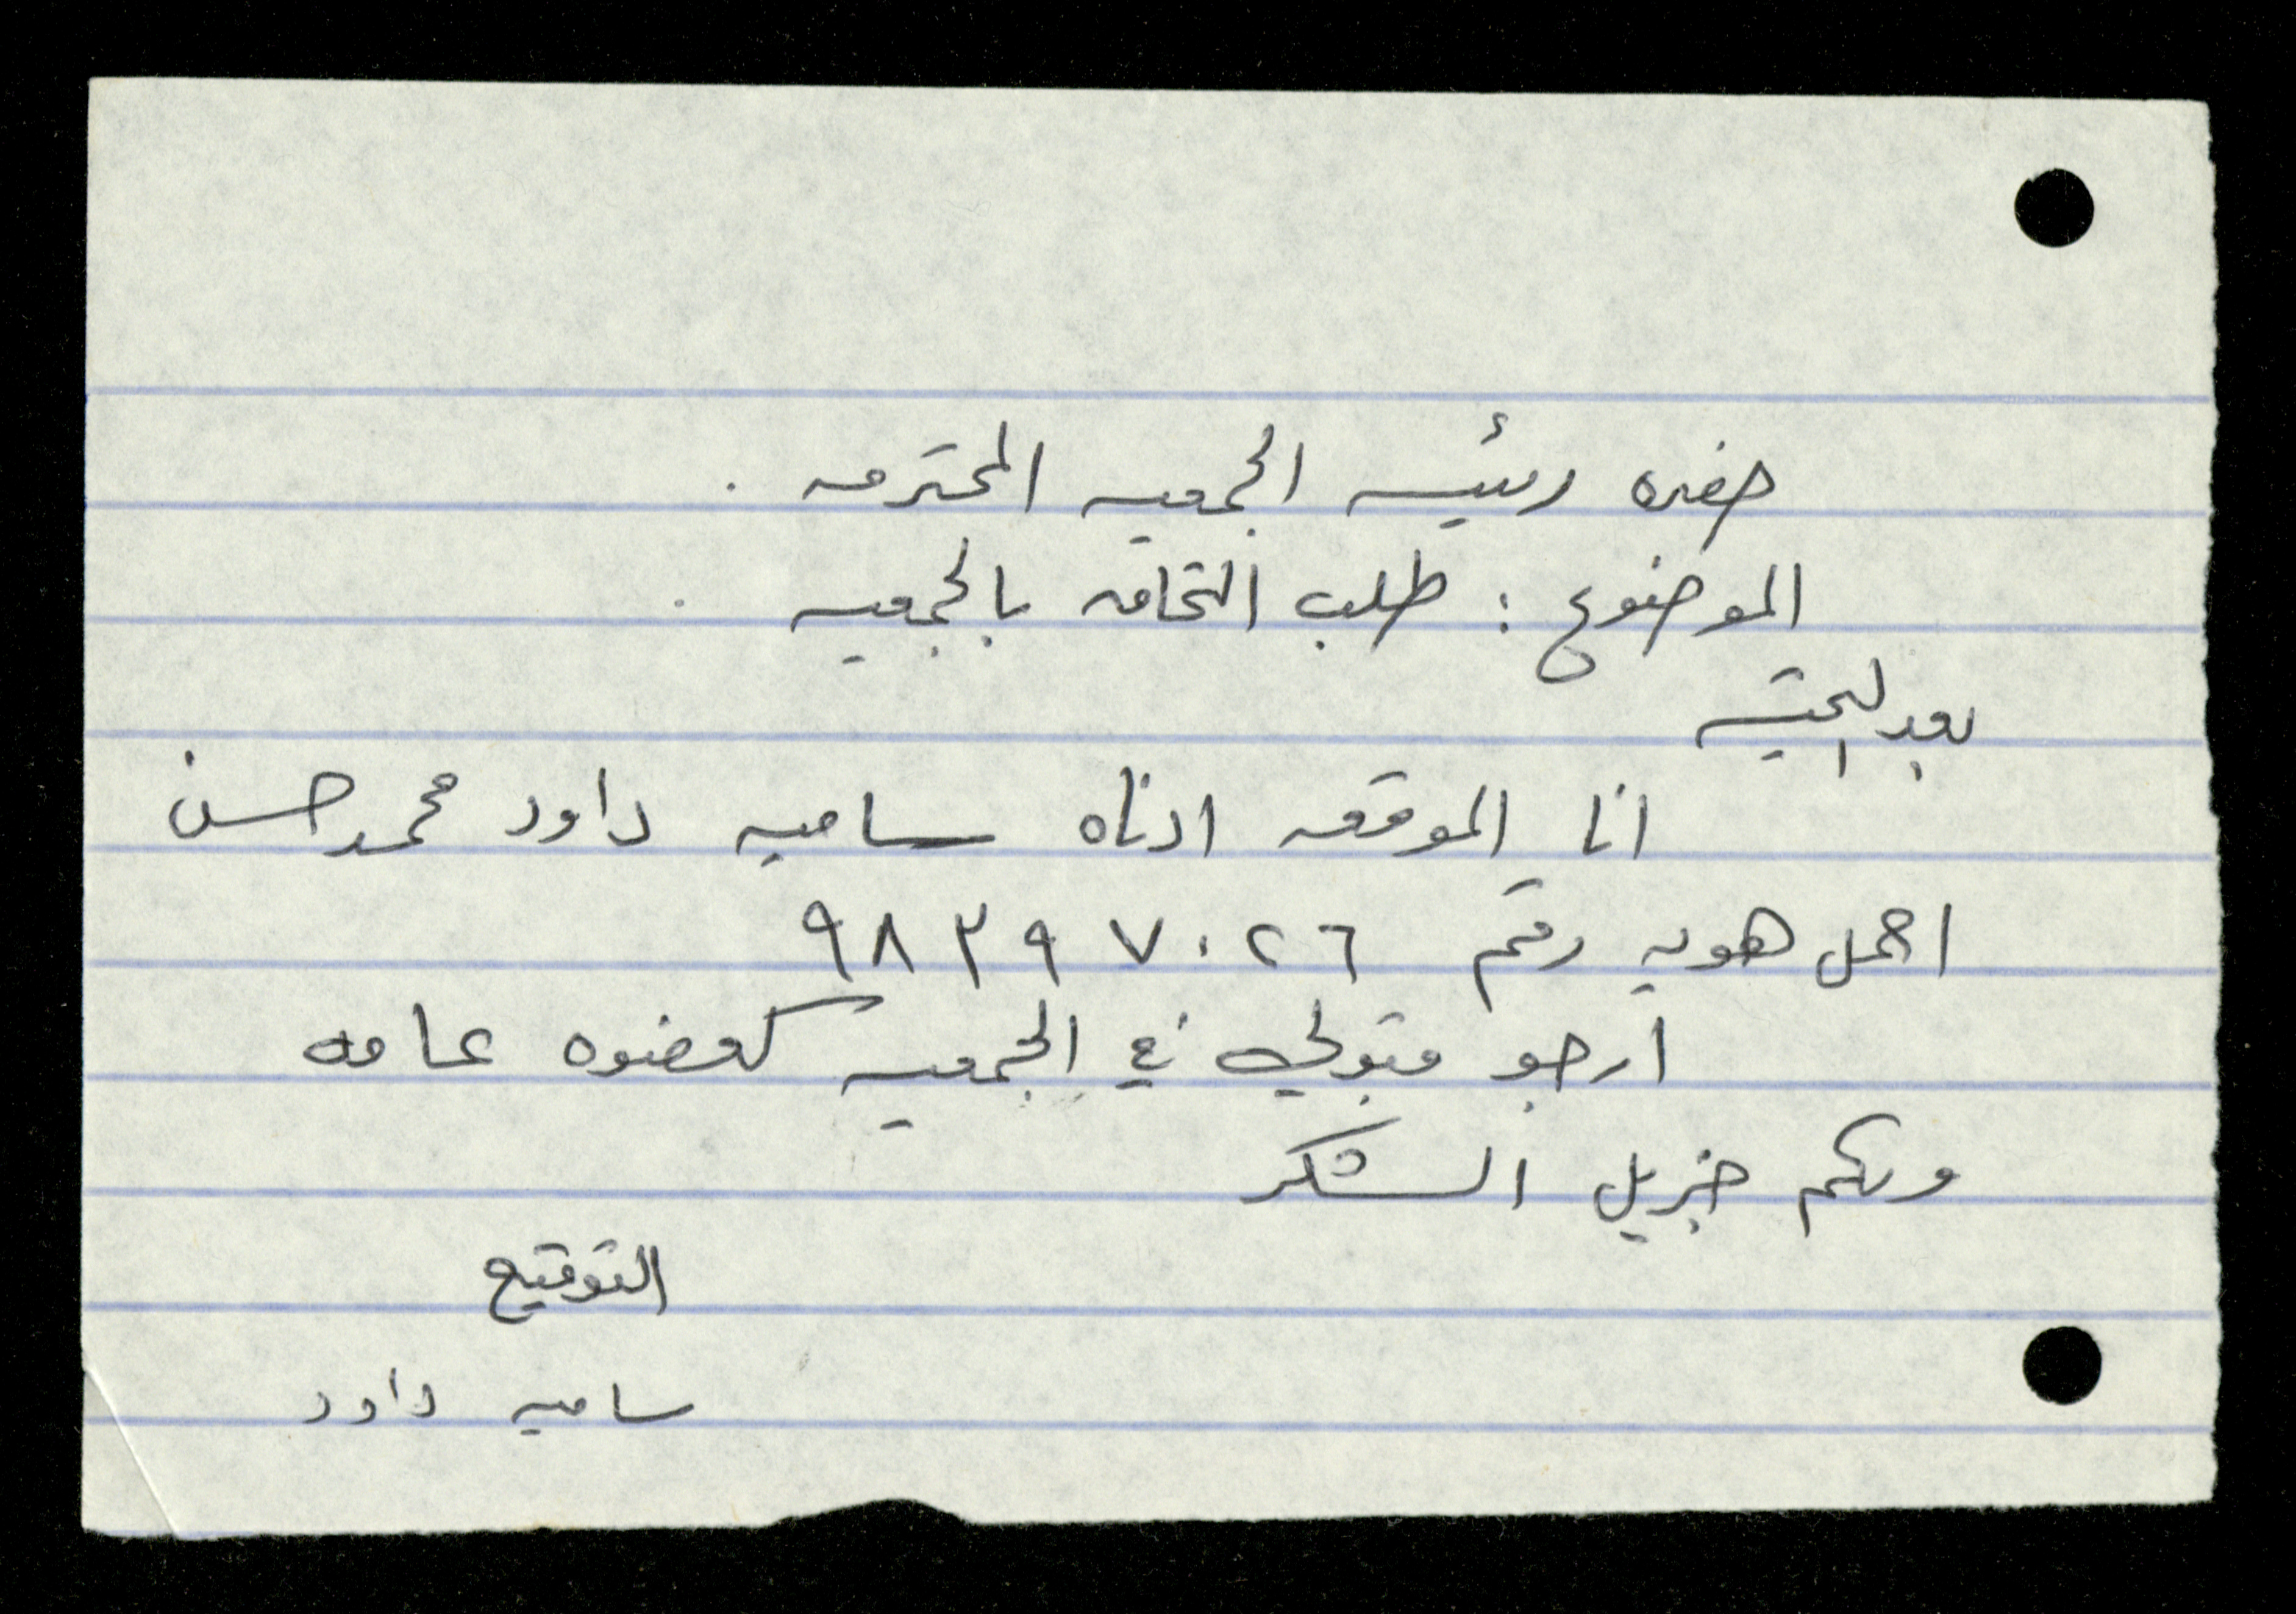 حضره رئيسه الجمعيه المحترمه .
الموضوع : طلب التحاق بالجمعيه .
بعد التحيه
انا الموقعه ادناه ساميه داود محمد حسن
احمل هويه رقم ٩٨٣٩٧٠٢٦
ارجو قبولي في الجمعيه كعضوه عامه
ولكم جزيل الشكر
التوقيع
ساميه داود